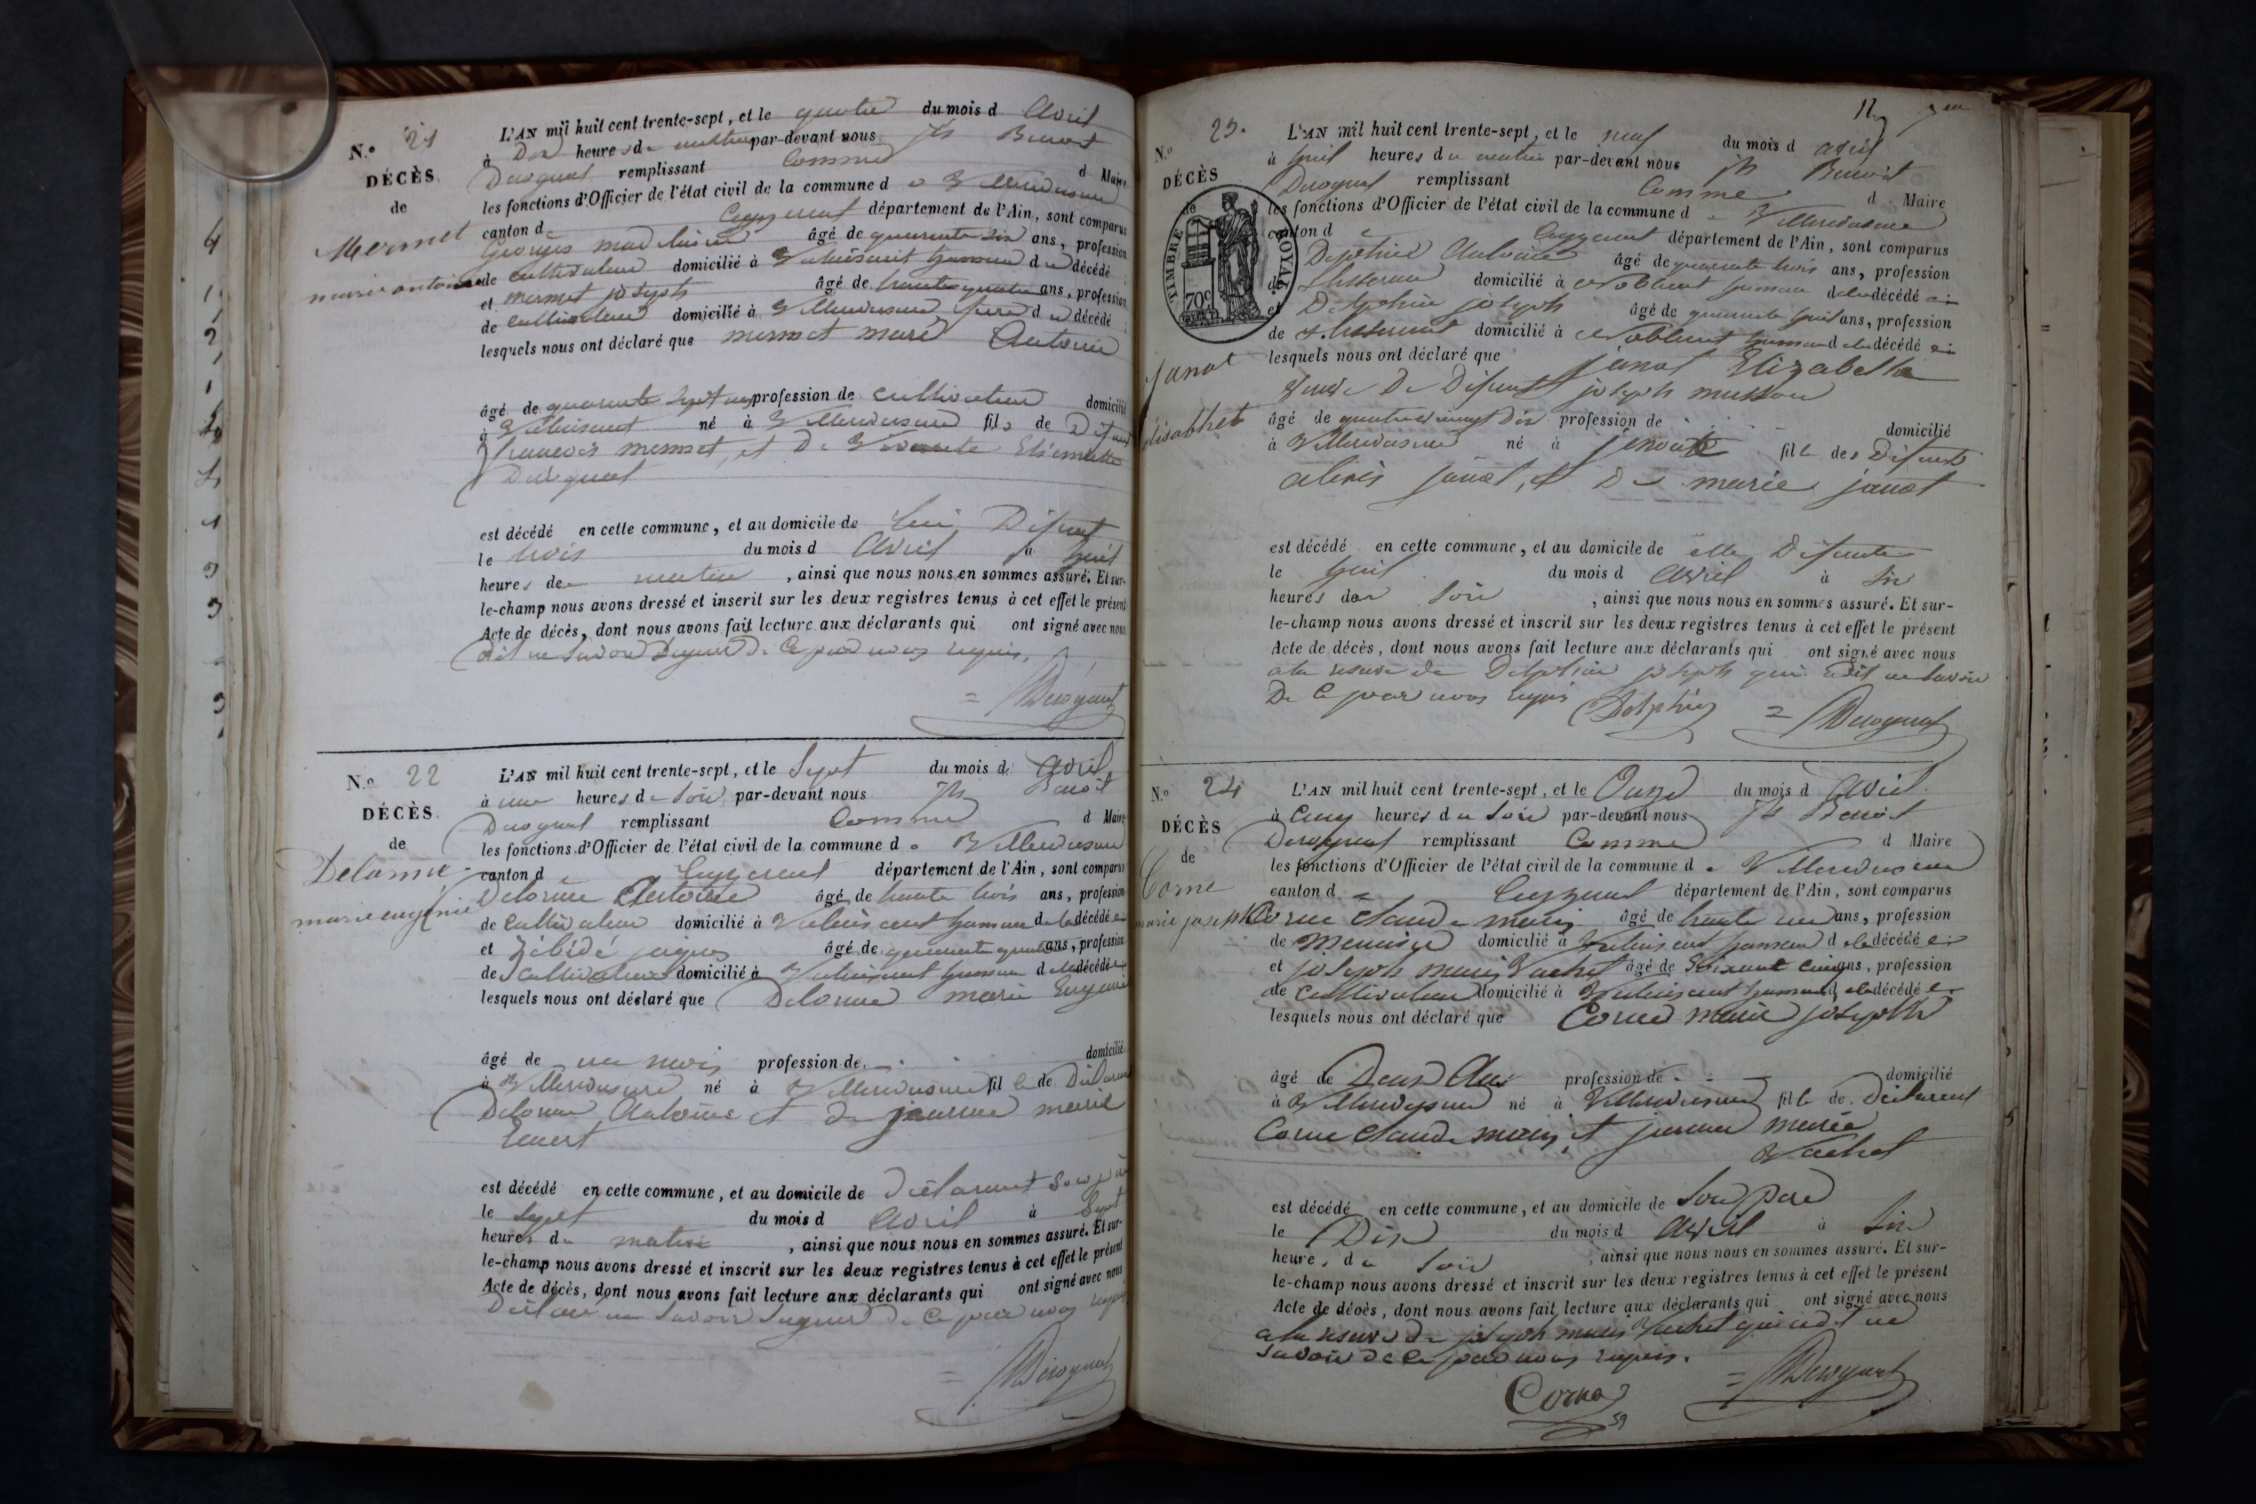 N.o 21
DÉCÈS
de
Mermet
marie antoine
L'AN mil huit cent trente-sept, et le quatre du mois d avril
à Dix heures du matin par-devant nous jh Benoit
Derognat remplissant Comme d Maire
les fonctions d'Officier de l'état civil de la commune d e Villereversure
canton d Ceyzeriat département de l'Ain, sont comparus
Georges âgé de quarante six ans, profession
de cultivateur domicilié à d u décédé
et mermet joseph âgé de trente quatre ans, profession
de cultivateur domicilié à Villereversure frere d u décédé
lesquels nous ont déclaré que mermet marie Antoine
âgé de quarante sept ans profession de cultivateur domicilié
à né à Villereversure fils de Défunt
francois mermet, et De Vivante Etiennette
Derognat
est décédé en cette commune, et au domicile de lui Défunt
le trois du mois d avril à huit
heures de matin, ainsi que nous nous en sommes assuré. Et sur-
le-champ nous avons dressé et inscrit sur les deux registres tenus à cet effet le présent
Acte de décès, dont nous avons fait lecture aux déclarants qui ont signé avec nous
ne Savoir Signer De Ce par nous requis.
= Derognat
N.o 22
DÉCÈS
de
Delorme
marie eugénie
L'AN mil huit cent trente-sept, et le Sept du mois d avril
à une heures de Soir par-devant nous jh Benoit
Derognat remplissant Comme d Maire
les fonctions d'Officier de l'état civil de la commune d e Villereversure
canton d Ceyzeriat département de l'Ain, sont comparus
Delorme Antoine âgé de trente trois ans, profession
de Cultivateur domicilié à d la décédé e
et jaques âgé de quarante quatre ans, profession
de Cultivateur domicilié à d la décédé e
lesquels nous ont déclaré que Delorme marie Eugenie
âgé de un mois profession de domicilié
à Villereversure né à Villereversure fil le de Déclarant
Delorme Antoine et de jeanne marie
est décédé en cette commune, et au domicile de Déclarant Son père
le Sept du mois d avril à Sept
heures du matin, ainsi que nous nous en sommes assuré. Et sur-
le-champ nous avons dressé et inscrit sur les deux registres tenus à cet effet le présent
Acte de décès, dont nous avons fait lecture aux déclarants qui ont signé avec nous
Déclaré ne Savoir Signer De Ce par nous requis
= Derognat
12
N.o 23.
DÉCÈS
de
TIMBRE ROYAL.
70c
janat
élisabhet
L'AN mil huit cent trente-sept, et le neuf du mois d avril
à huit heures du matin par-devant nous jh Benoit
Derognat remplissant Comme d Maire
les fonctions d'Officier de l'état civil de la commune d e Villereversure
canton d e Ceyzeriat département de l'Ain, sont comparus
Delphin Antoine âgé de quarante trois ans, profession
de domicilié à d la décédé e
et Delphin joseph âgé de quarante huit ans, profession
de domicilié à d la décédé e
lesquels nous ont déclaré que janat Elizabeth
Veuve De Défunt joseph
âgé de quatre vingt Dix profession de domicilié
à Villereversure né à fil le des Défunts
alexis janat, et De marie janat
est décédé en cette commune, et au domicile de elle Défunte
le huit du mois d avril à Six
heures du Soir, ainsi que nous nous en sommes assuré. Et sur-
le-champ nous avons dressé et inscrit sur les deux registres tenus à cet effet le présent
Acte de décès, dont nous avons fait lecture aux déclarants qui ont signé avec nous
a la reserve de Delphin joseph qui a dit ne Savoir
De Ce par nous requis Delphin = Derognat
N.o 24
DÉCÈS
de
Corne
marie josephte
L'AN mil huit cent trente-sept, et le Onze du mois d avril
à Cinq heures du Soir par-devant nous jh Benoit
Derognat remplissant Comme d Maire
les fonctions d'Officier de l'état civil de la commune d e Villereversure
canton d e Ceyzeriat département de l'Ain, sont comparus
Corne Claude marie âgé de trente un ans, profession
de domicilié à d la décédé e
et joseph marie Vachet âgé de Soixante Cinq ans, profession
de Cultivateur domicilié à d la décédé e
lesquels nous ont déclaré que Corne marie josephte
âgé de Deux Ans profession de domicilié
à Villereversure né à Villereversure fil le de Déclarant
Corne Claude marie, et jeanne marie
Vachet
est décédé en cette commune, et au domicile de Son Père
le Dix du mois d avril à Six
heures du Soir, ainsi que nous nous en sommes assuré. Et sur-
le-champ nous avons dressé et inscrit sur les deux registres tenus à cet effet le présent
Acte de décès, dont nous avons fait lecture aux déclarants qui ont signé avec nous
a la reserve de joseph marie Vachet qui a dit ne
Savoir de Ce par nous requis.
Corne = Derognat